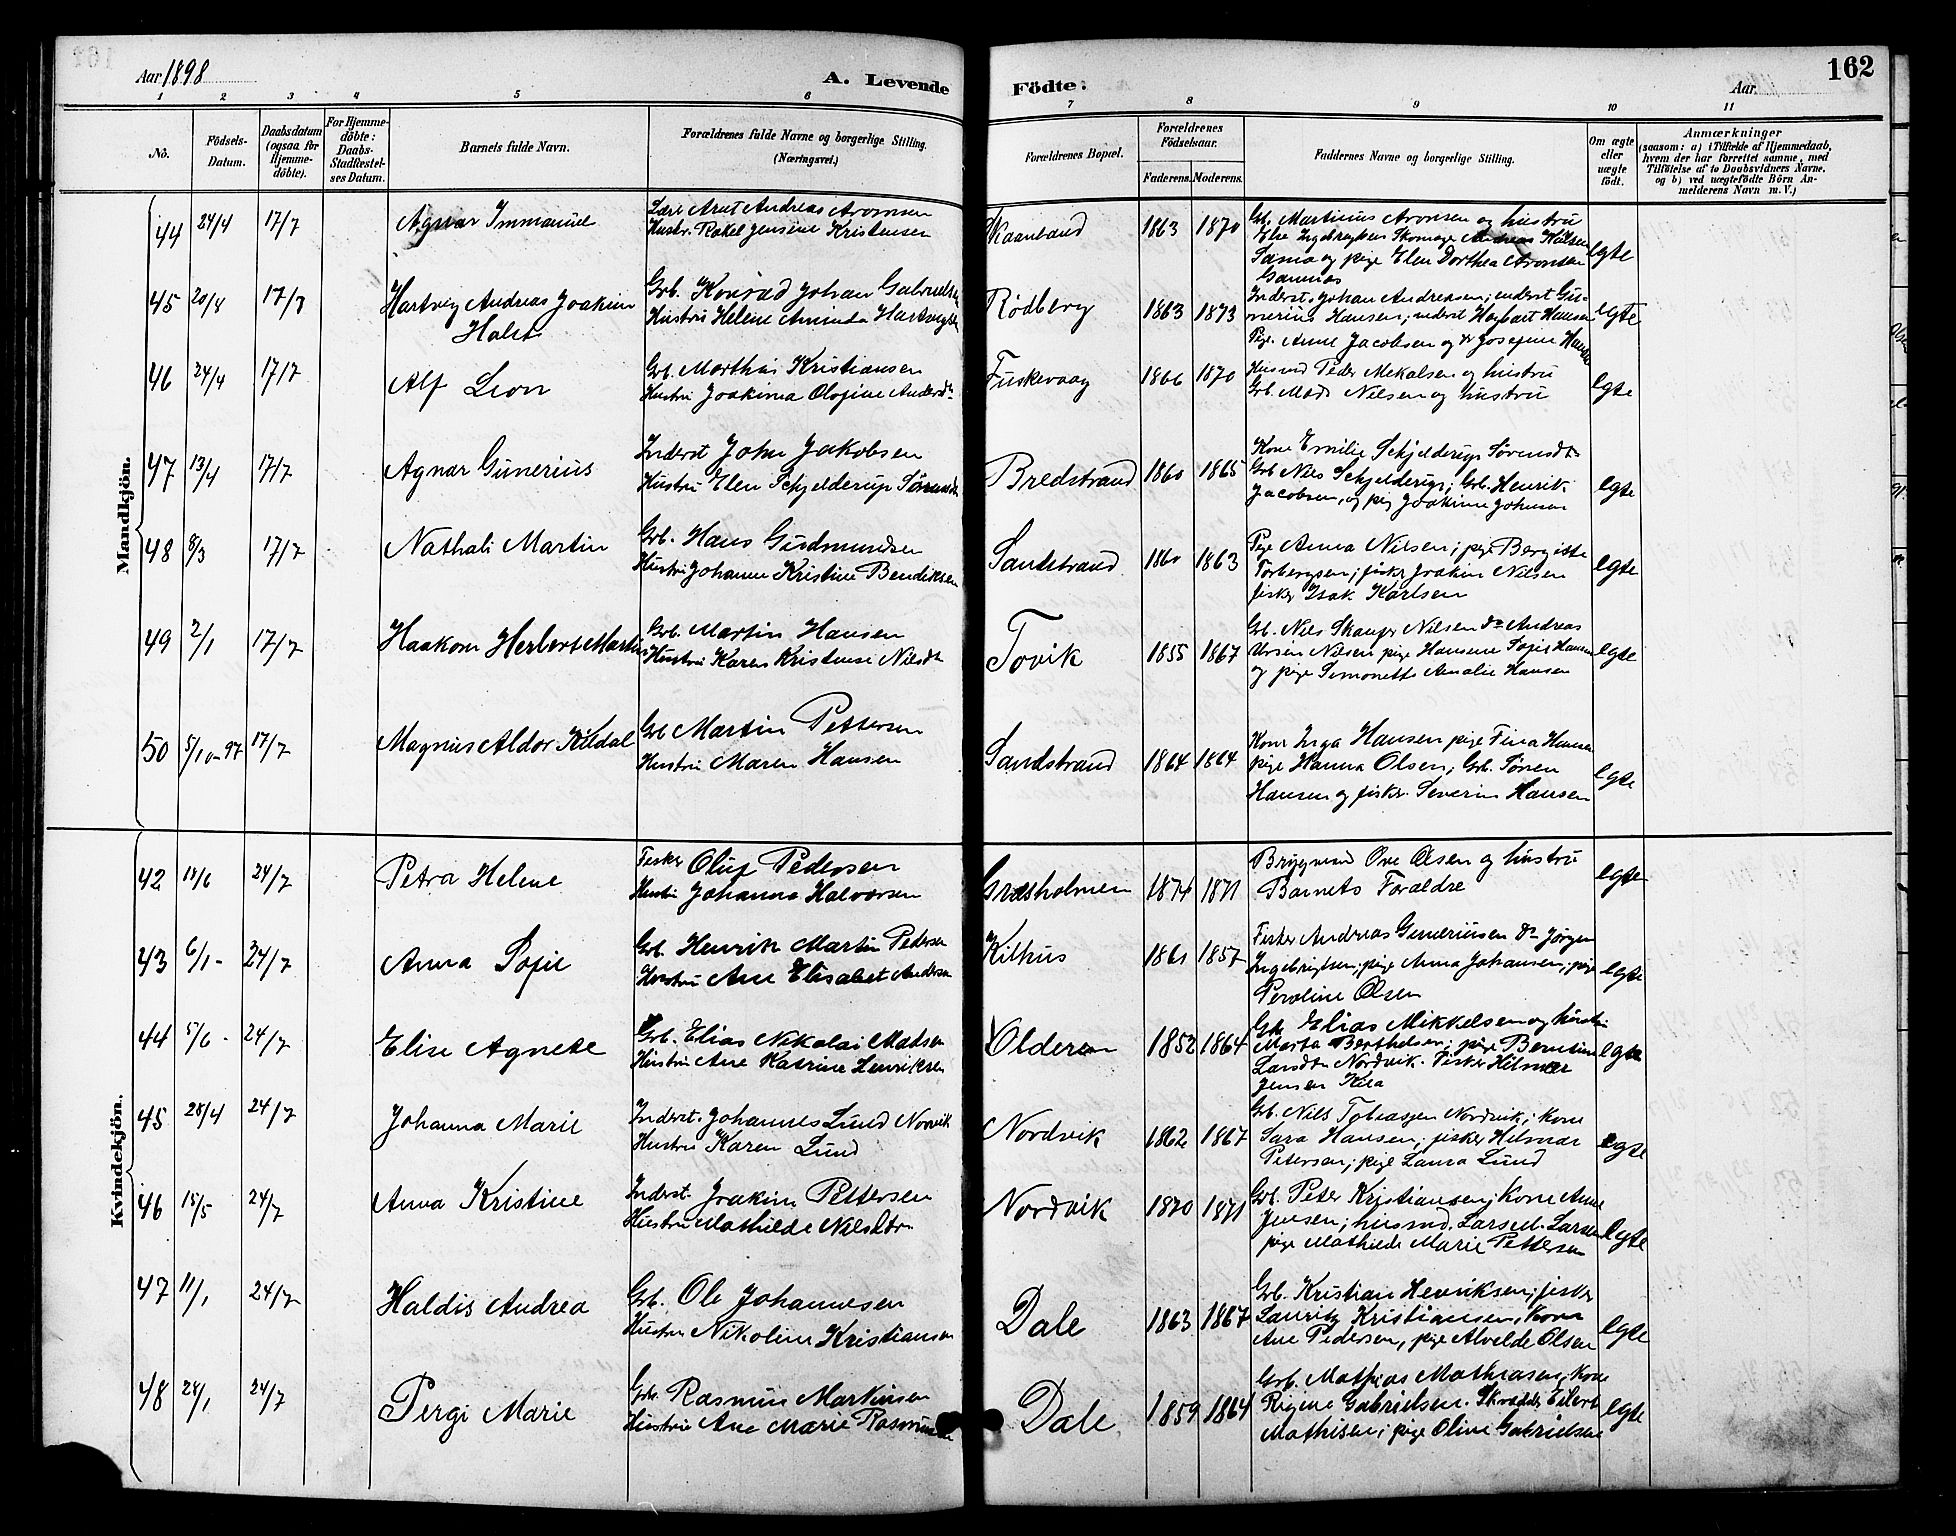 162
Aar 1898
A. Levende
Födte:
Aar
1 2 3 4 5 6 7 8 9 10 11
No.
Födsels-Datum.
Daabsdatum (ogsaa for Hjemme-döbte).
For Hjemme-döbte: Daabs-Stadfæstel-ses Datum.
Barnets fulde Navn.
Forældrenes fulde Navne og borgerlige Stilling. (Næringsvei.)
Forældrenes Bopæl.
Forældrenes Födselsaar.
Faderens. Moderens.
Faddernes Navne og borgerlige Stilling.
Om ægte eller uægte födt.
Anmærkninger
(saasom: a) i Tilfælde af Hjemmedaab, hvem der har forrettet samme, med Tilföielse af to Daabsvidners Navne, og b) ved uægtefödte Börn An-melderens Navn m. V.)
Mandkjön.
44 24/4 17/7 Agnar Immanuel
Arnt Andreas Aronsen
Hustr. Rakel Jensine Kristensen
Skaanland 1863 1870
Gb. Martinus Aronsen og hustru
Else Skomager Andreas
og pige Elen Dorthea Aronsen
egte
45 20/4 17/7 Hartvig Andreas Joakim
Holst
Grb. Konrad Johan Gabrielsen
Hustru Helene Amanda Hartvigsen
Rødberg 1863 1873
Inderst Johan Andreasen; inderst Gu-
nerius Hansen; inderst Hagbart Hansen
Pige Anne Jacobsen og do Josefine Hansen
egte
46 24/4 17/7 Alf Leon
Grb. Morthin Kristiansen
Hustru Joakima Olufine Andersdtr
Fuskevaag 1866 1870
Husmd Peder Mekalsen og hustru
Grb. Mads Nilsen og hustru
egte
47 13/4 17/7 Agnar Gunerius
Inderst John Jakobsen
Hustru Elen Schjelderup Sørensdtr
Bredstrand 1860 1865
Kone Emilie Schjelderup Sørensdtr
Grb Nils Schjelderup; Grb. Henrik
Jacobsen, og pig Joakime Johnsen
egte
48 8/3 17/7 Nathali Martin
Grb. Hans Gudmundsen
Hustru Johanne Kristine Bendiksen
Sandstrand 1860 1863
Pige Anna Nilsen; pige Bergitte
Torbergsen; fisker Joakim Nilsen
fisker Isak Karlsen
egte
49 2/1 17/7 Haakon Herbert Martin
Grb. Martin Hansen
Hustru Karen Kristense Nilsdtr
Tovik 1855 1867
Gb. Nils Nilsen do Andreas
Nilsen pige Hansene Sofie Hansen
og pige Simonette Amalie Hansen
egte
50 5/10-97 17/7 Magnus Aldor Kildal
Grb Martin Pettersen
Hustru Maren Hansen
Sandstrand 1864 1864
Kone Inga Hansen pige Fina Hansen
pige Hanna Olsen; Grb. Sören
Hansen og fisker Severin Hansen
egte
Kvindekjön.
42 18/6 24/7 Petra Helene
Fisker Oluf Pedersen
Hustru Johanna Halvorsen
Græsholmen 1874 1871
Bryggmand Ove Olsen og hustru
Barnets Forældre
egte
43 6/1- 24/7 Anna Sofie
Grb. Henrik Martin Pedersen
Hustru Ane Elisabet Andersen
Kilhus 1861 1857
Fisker Andreas Guneriusen do Jörgen
Ingebrigtsen; pige Anna Johansen; pige
Peroline Olsen
egte
44 5/6- 24/7 Elise Agnete
Grb. Elias Nikolai Madsen
Hustru Ane Katrine Henriksen
Olderen 1852 1864
Grb Elias Mikkelsen og hustru
Marta Berthelsen; pige Berntine
Larsdtr Nordvik. Fisker Hilmar
Jensen
egte
45 28/4 24/7 Johanna Marie
Inderst. Johannes Lund Norvik
Hustru Karen Lund
Nordvik 1862 1867
Grb. Nils Tobiassen Nordvik; kone
Sara Hansen; fisker Hilmar
Petersen; pige Laura Lund
egte
46 15/5 24/7 Anna Kristine
Inderst. Joakim Pettersen
Hustru Mathilde Nilsdtr
Nordvik 1870 1871
Grb. Peter Kristiansen; Kone Ane
Jensen; husmd. Lars M. Larsen
pige Mathilde Marie Pettersen
egte
47 11/1 24/7 Haldis Andrea
Grb. Ole Johannesen
Hustru Nikoline Kristiansen
Dale 1863 1867
Grb. Kristian Henriksen; fisker
Lauritz Kristiansen, kone
Ane Pedersen, pige Alvelde Olsen
egte
48 28/1 24/7 Pergi Marie
Grb. Rasmus Martinsen
Hustru Ane Marie Rasmussen
Dale 1859 1864
Grb. Mathias Mathiasen, Kone
Rigine Gabrielsen. Skrædder Eilert
Mathisen; pige Oline Gabrielsen
egte